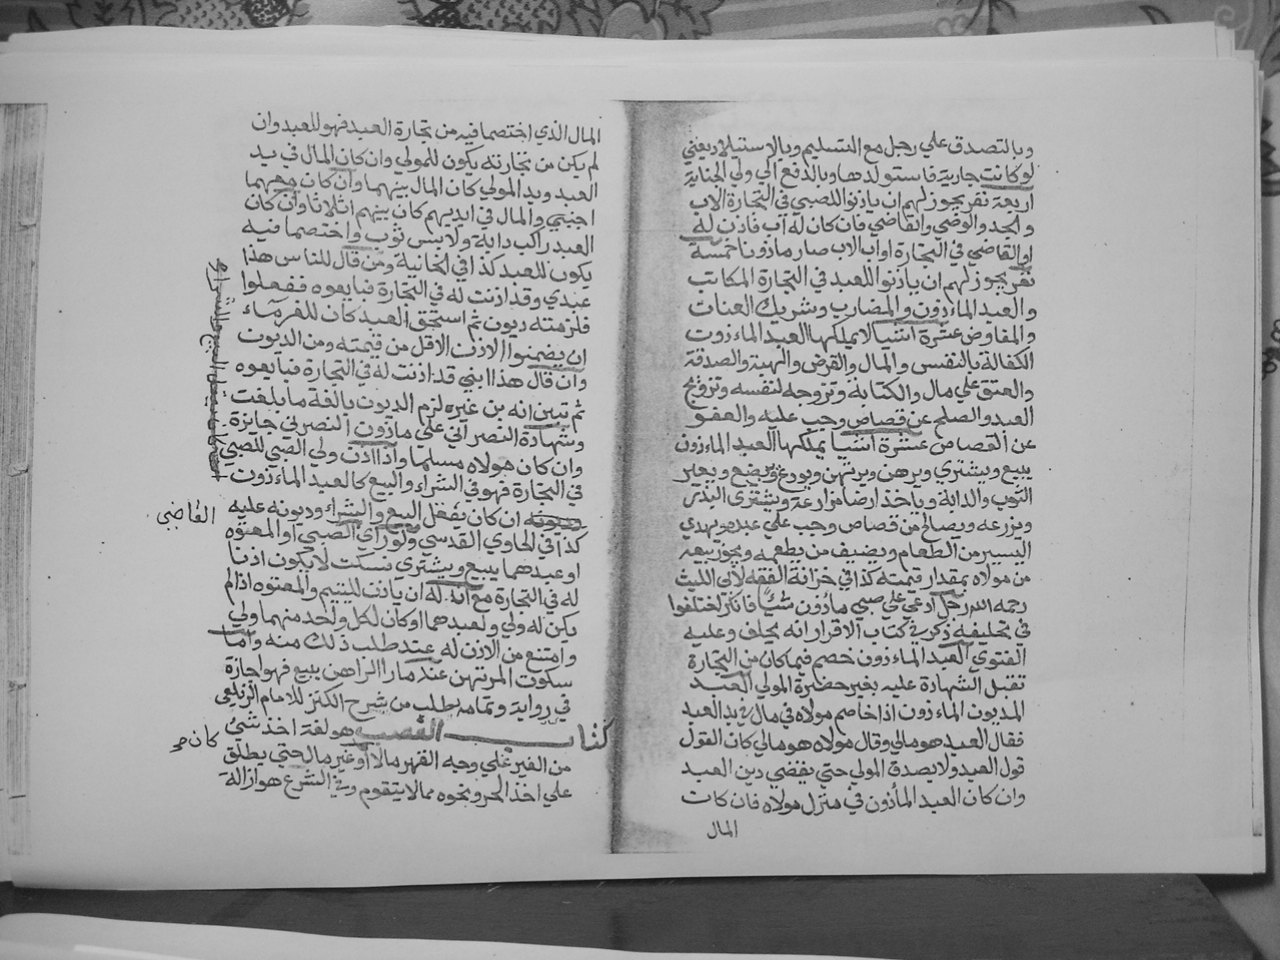 وبالتصدق علي رجل مع التسليم وبالاستيلاد يعني
لو كانت جارية فاستولدها وبالدفع الي ولي الجناية
اربعة نفر يجوز لهم ان ياذنوا للصبي في التجارة الاب
والجد والوصي والقاضي فان كان له اب فاذن له
او القاضي في التجارة او اب الاب صار ماذونا خمسة
نفر يجوز لهم ان ياذنوا للعبد في التجارة المكاتب
والعبد الماءذون والمضارب وشريك العنان
والمفاوض عشرة اشيا لا يملكها العبد الماءذون
الكفالة بالنفس والمال والقرض والهبة والصدقة
والعتق علي مال والكتابة وتزوجه لنفسه وتزويج
العبد والصلح عن قصاص وجب عليه والعفو
عن القصاص عشرة اشيا يملكها العبد الماءذون
يبيع ويشتري ويرهن ويرتهن ويودع ويبضع ويعير
الثوب والدابة وياخذ ارضا مزارعة ويشتري البذر
ويزرعه ويصالح من قصاص وجب علي عبده ويهدي
اليسير من الطعام ويضيف من يطعمه ويجوز بيعه
من مولاه بمقدار قيمته كذا في خزانة الفقه لابي الليث
رحمه الله رجل ادعي علي صبي ماذون شيأ فانكر اختلفوا
في تحليفه ذكر في كتاب الاقرار انه يحلف وعليه
الفتوي العبد الماءذون خصم فيما كان من التجارة
تقبل الشهادة عليه بغير حضرة المولي العبد
المديون الماءذون اذا خاصم مولاه في مال في يد العبد
فقال العبد هو مالي وقال مولاه هو مالي كان القول
قول العبد ولا يصدق المولي حتي يقضي دين العبد
وان كان العبد المأذون في منزل مولاه فان كان
المال
المال الذي اختصما فيه من تجارة العبد فهو للعبد وان
لم يكن من تجارته يكون للمولي وان كان المال في يد
العبد ويد المولي كان المال بينهما وان كان معهما
اجنبي والمال في ايديهم كان بينهم اثلاثا وان كان
العبد راكب دابة ولابس ثوب واختصما فيه
يكون للعبد كذا في الخانية ومن قال للناس هذا
عبدي وقد اذنت له في التجارة فبايعوه ففعلوا
فلزمته ديون ثم استحق العبد كان للغرمآء
ان يضمنوا الاذن الاقل من قيمته ومن الديون
وان قال هذا ابني قد اذنت له في التجارة فبايعوه
ثم تبين انه بن غيره لزم الديون بالغة ما بلغت
وشهادة النصراني علي ماذون النصراني جايزة
وان كان مولاه مسلما واذا اذن ولي الصبي للصبي
في التجارة فهو في الشراء والبيع كالعبد الماءذون
ان كان يعقل البيع والشراء وديونه عليه
كذا في الحاوي القدسي ولو راي الصبي او المعتوه
القاضي
او عبدهما يبيع ويشتري فسكت لا يكون اذنا
له في التجارة مع انه له ان ياذن لليتيم والمعتوه اذا لم
يكن له ولي ولعبدهما او كان لكل واحد منهما ولي
وامتنع من الاذن له عند طلب ذلك منه واما
سكوت المرتهن عند ما راا الراهن يبيع فهو اجازة
في رواية وتمامه طلب من شرح الكنز للامام الزيلعي
كتاب الغصب هو لغة اخذ شئ
كان
من الغير علي وجه القهر مالا او غير مال حتي يطلق
علي اخذ الحر ونحوه مما لا يتقوم وفي الشرع هو ازالة